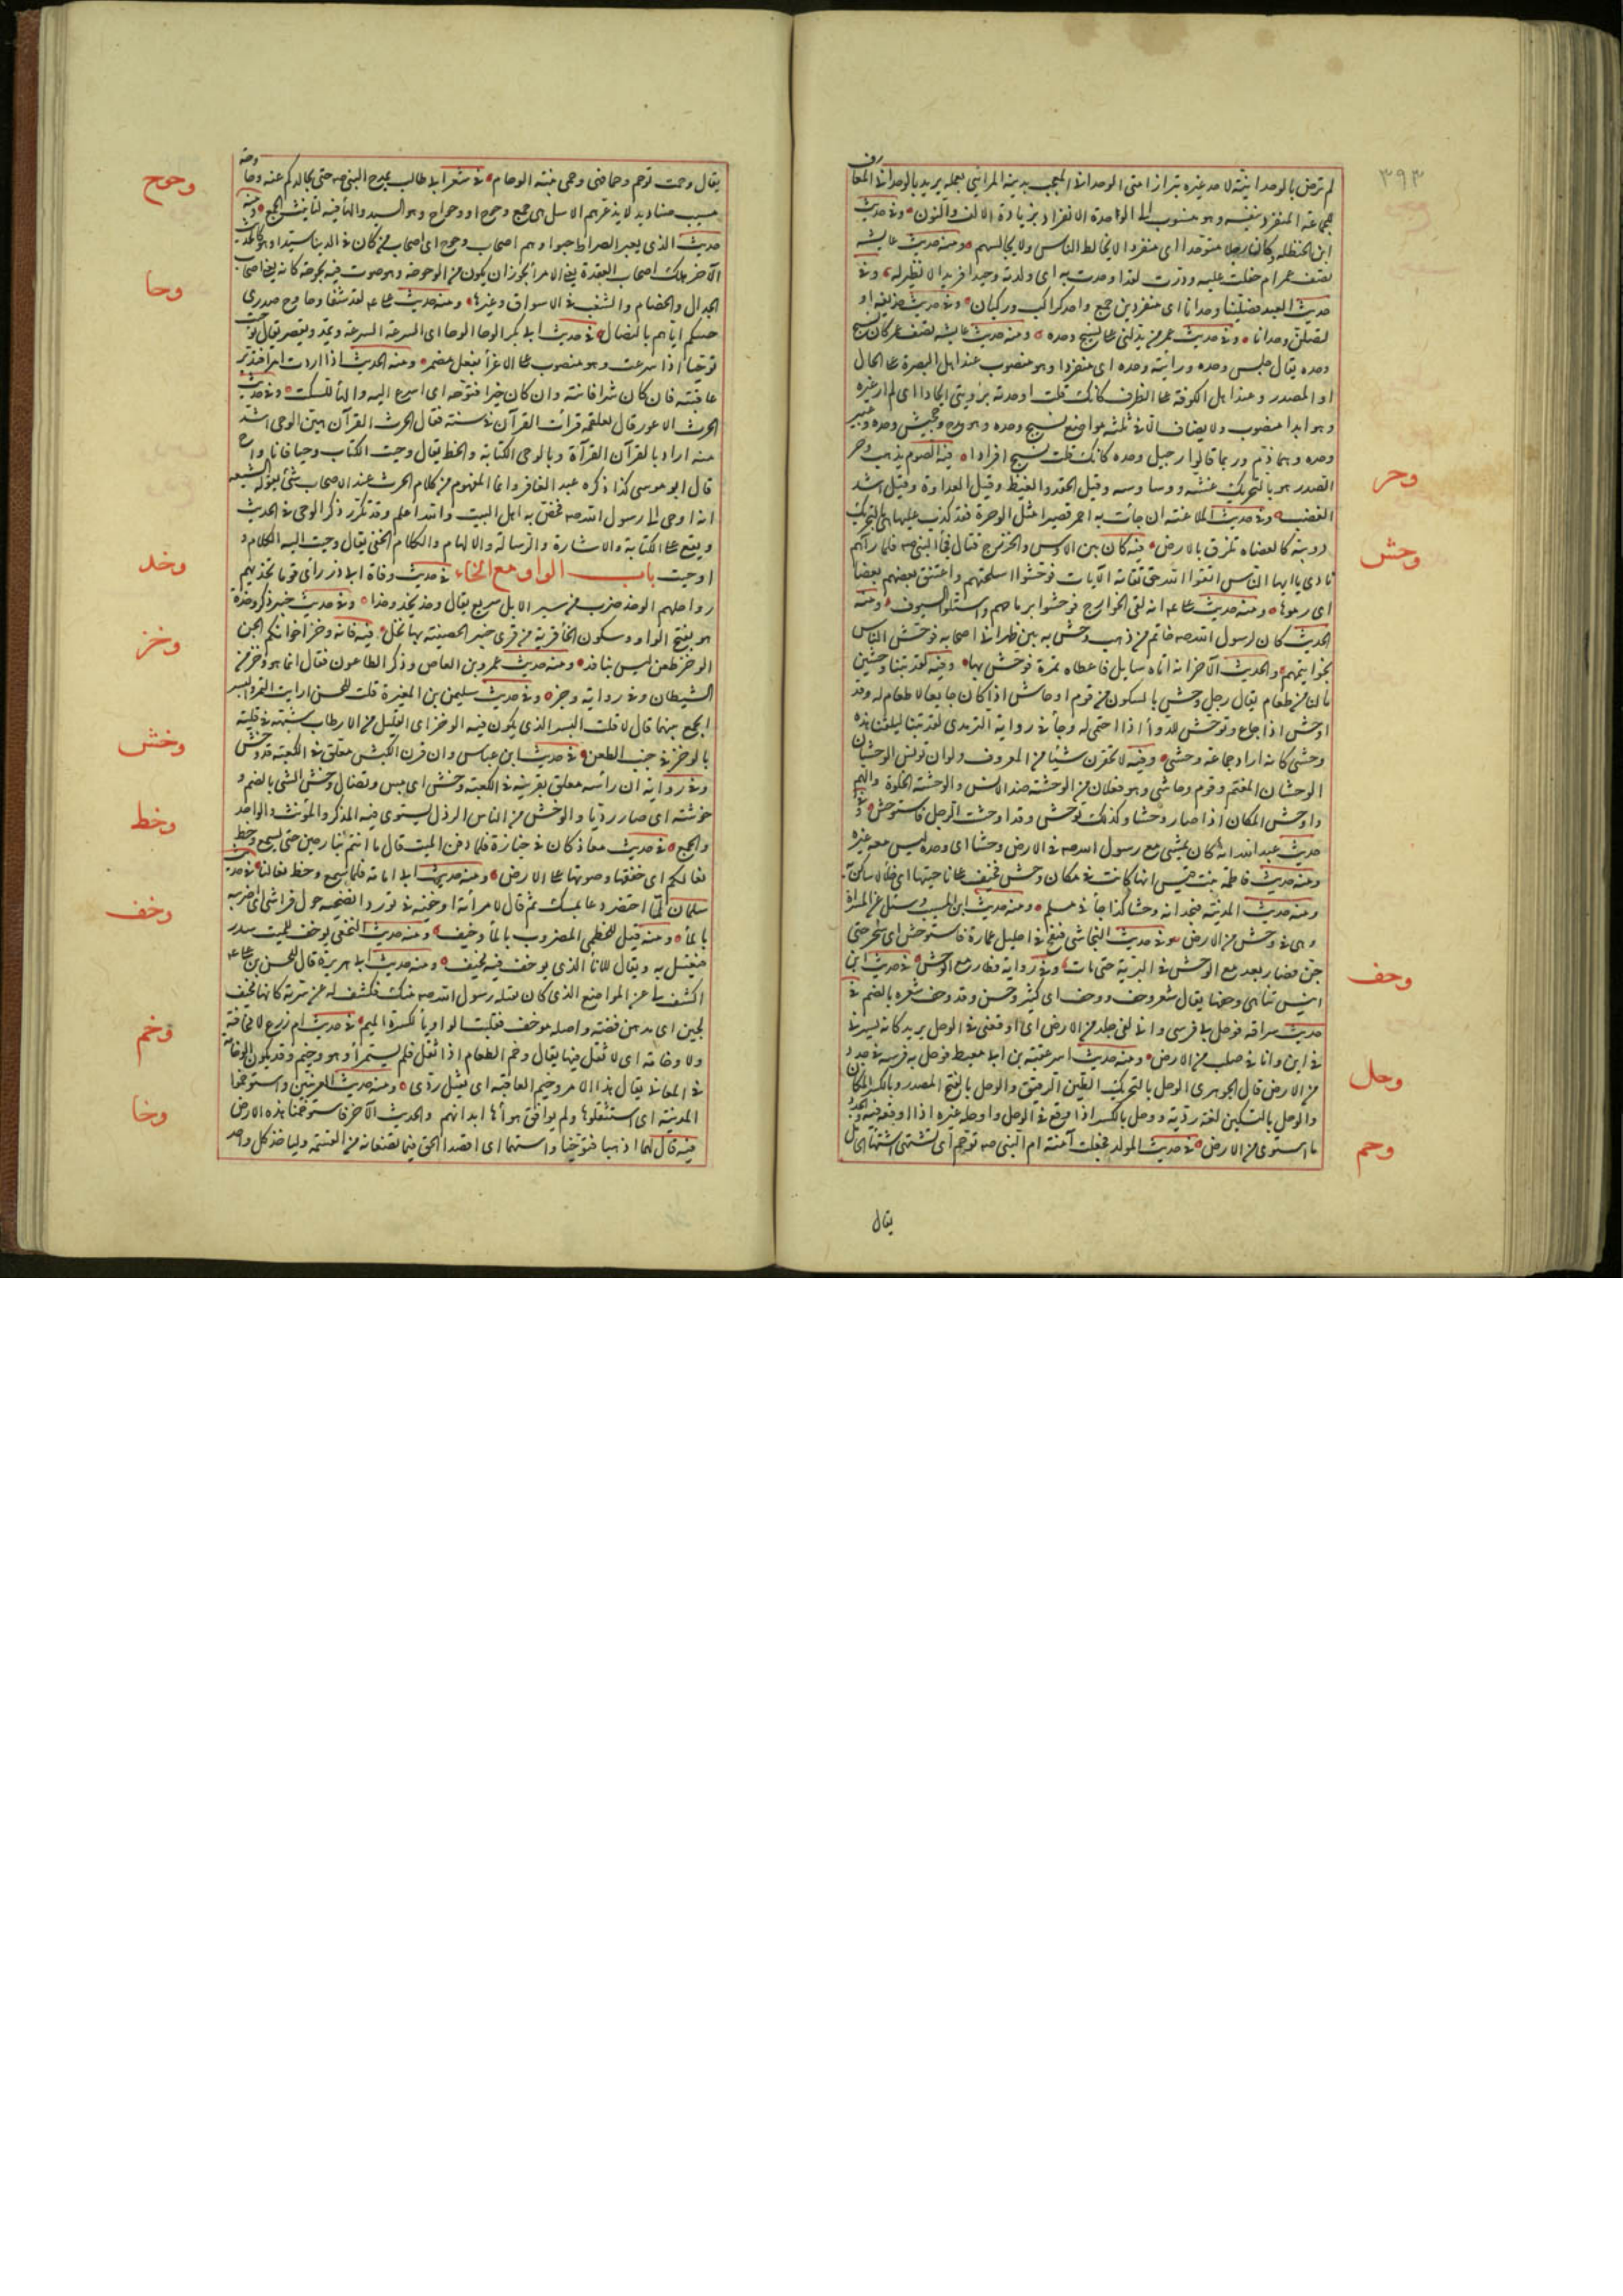 ٣٩٣
لم ترض بالوحدانية لاحد غيره شرار امتى الوحدانى المعجب بدينه المرائى بعمله يريد بالوحدانى المفارق
للجماعة المنفرد بنفسه وهو منسوب الى الوحدة الانفراد بزيادة الالف والنون وفى حديث
ابن الحنظلية وكان رجلا متوحدا اى منفردا لا يخالط الناس ولا يجالسهم ومنه حديث عايشة
تصف عمر ام حفلت عليه ودرت لقد اوحدت به اى ولدته وحيدا فريدا لا نظير له وفى
حديث العيد فصلينا وحدانا اى منفردين جمع واحد كراكب وركبان وفى حديث حذيفة او
لتصلن وحدانا وفى حديث عمر من يدلنى على نسيج وحده ومنه حديث عايشة تصف عمر كان نسيج
وحده يقال جلس وحده ورأيته وحده اى منفردا وهو منصوب عند اهل البصرة على الحال
او المصدر وعند اهل الكوفة على الظرف كانك قلت اوحدته برؤيتى ايحادا اى لم ار غيره
وهو ابدا منصوب ولا يضاف الا فى ثلثة مواضع نسيج وحده وهو مدح وجحيش وحده وعيير
وحده وهما ذم وربما قالوا رجيل وحده كانك قلت نسيج افرادا فيه الصوم يذهب وحر
الصدر هو بالتحريك غشه ووساوسه وقيل الحقد والغيظ وقيل العداوة وقيل اشد
الغضب وفى حديث الملاعنة ان جأت به احمر قصيرا مثل الوحرة فقد كذب عليها هى بالتحريك
دويبة كالعضاة تلزق بالارض فيه كان بين الاوس والخزرج قتال فجأ النبى صه فلما رآهم
نادى يا ايها الناس اتقوا الله حق تقاته الآيات فوحشوا اسلحتهم واعتنق بعضهم بعضا
اى رموها ومنه حديث على انه لقى الخوارج فوحشوا برماحهم واستلوا السيوف ومنه
الحديث كان لرسول الله صه خاتم من ذهب وحش به بين ظهرانى اصحابه فوحش الناس
بخواتيمهم والحديث الآخر انه اتاه سايل فاعطاه تمرة فوحش بها وفيه لقد بتنا وحشين
ما لنا من طعام يقال رجل وحش بالسكون من قوم اوحاش اذا كان جايعا لا طعام له وقد
اوحش اذا جاع وتوحش للدوأ اذا احتمى له وجأ فى رواية الترمذى لقد بتنا ليلتنا هذه
وحشى كانه اراد جماعة وحشى وفيه لا تحقرن شيئا من المعروف ولو ان تونس الوحشان
الوحشان المغتم وقوم وحاشى وهو فعلان من الوحشة ضد الانس والوحشة الخلوة والهم
واوحش المكان اذا صار وحشا وكذلك توحش وقد اوحشت الرجل فاستوحش وفى
حديث عبد الله انه كان يمشى مع رسول الله صه فى الارض وحشا اى وحده ليس معه غيره
ومنه حديث فاطمة بنت قيس انها كانت فى مكان وحش فخيف على ناحيتها اى خلا لا ساكن به
ومنه حديث المدينة فيجدانه وحشا كذا جأ فى مسلم ومنه حديث ابن المسيب وسئل عن المرأة
وهى فى وحش من الارض وفى حديث النجاشى فنفخ فى احليل عمارة فاستوحش اى سحر حتى
جن فصار يعدو مع الوحش فى البرية حتى مات وفى رواية فطار مع الوحش فى حديث ابن
انيس تناهى وحفها يقال شعر وحف ووحف اى كثير وحسن وقد وحف شعره بالضم فى
حديث سراقة فوحل بى فرسى وانى لفى جلد من الارض اى اوقعنى فى الوحل يريد كانه يسير بى
فى طين وانا فى صلب من الارض ومنه حديث اسر عقبة بن ابى معيط فوحل به فرسه فى جدد
من الارض قال الجوهرى الوحل بالتحريك الطين الرقيق والوحل بالفتح المصدر وبالكسر المكان
والوحل بالتسكين لغة ردية ووحل بالكسر اذا وقع فى الوحل واوحله غيره اذا اوقعه فيه والجدد
ما استوى من الارض فى حديث المولد فجعلت آمنة ام النبى صه توحم اى تشتهى اشتهاء الحامل
يقال
وحر
وحش
وحف
وحل
وحم
يقال وحمت توحم وحما فهى وحمى بينة الوحام فى شعر ابى طالب يمدح النبى صه حتى تجالدكم عنه وحاوحة
شيب صناديد لا يذعرهم الاسل هى جمع وحوح او وحواح وهو السيد والهأ فيه لتأنيث الجمع ومنه
حديث الذى يعبر الصراط حبوا وهم اصحاب وحوح اى اصحاب من كان فى الدنيا سيدا وهو كالحديث
الآخر هلك اصحاب العقدة يعنى الامرأ ويجوز ان يكون من الوحوحة وهو صوت فيه بحوحة كانه يعنى اصحاب
الجدال والخصام والشغب فى الاسواق وغيرها ومنه حديث على لقد شفا وحاوح صدرى
حسكم اياهم بالنصال فى حديث ابى بكر الوحا الوحا اى السرعة السرعة ويمد ويقصر يقال توحيت
توحيا اذا اسرعت وهو منصوب على الاغرأ بفعل مضمر ومنه الحديث اذا اردت امرا فتدبر
عاقبته فان كان شرا فانته وان كان خيرا فتوحه اى اسرع اليه والهأ للسكت وفى حديث
الحرث الاعور قال لعلقمة قرأت القرآن فى سنة فقال الحرث القرآن هين الوحى اشد
منه اراد بالقرآن القرآة وبالوحى الكتابة والخط يقال وحيت الكتاب وحيا فانا واح
قال ابو موسى كذا ذكره عبد الغافر وانما المفهوم من كلام الحرث عند الاصحاب شئ تقوله الشيعة
انه اوحى الى رسول الله صه شئ فخص به اهل البيت والله اعلم وقد تكرر ذكر الوحى فى الحديث
ويقع على الكتابة والاشارة والرسالة والالهام والكلام الخفى يقال وحيت اليه الكلام و
اوحيت باب الواو مع الخاء فى حديث وفاة ابى ذر رأى قوما تخذ بهم
رواحلهم الوخد ضرب من سير الابل سريع يقال وخد يخد وخدا وفى حديث خيبر ذكر وخدة
هو بفتح الواو وسكون الخأ قرية من قرى خيبر الحصينة بها نخل فيه فانه وخز اخوانكم الجن
الوخز طعن ليس بنافذ ومنه حديث عمرو بن العاص وذكر الطاعون فقال انما هو وخز من
الشيطان وفى رواية رجز وفى حديث سليمن بن المغيرة قلت للحسن ارايت التمر والبسر
ايجمع بينهما قال لا قلت البسر الذى يكون فيه الوخز اى القليل من الارطاب شبهه فى قلته
بالوخز فى جنب الطعن فى حديث ابن عباس وان قرن الكبش معلق فى الكعبة قد وخش
وفى رواية ان رأسه معلق بقرنيه فى الكعبة وخش اى يبس وتضال وخش الشى بالضم و
خوشته اى صار رديا والوخش من الناس الرذل يستوى فيه المذكر والمؤنث والواحد
والجمع فى حديث معاذ كان فى جنازة فلما دفن الميت قال ما انتم ببارحين حتى يسمع وخط
نعالكم اى خفقها وصوتها على الارض ومنه حديث ابى امامة فلما سمع وخط نعالنا فى حديث
سلمان لما احتضر دعا بمسك ثم قال لامرأته اوخفيه فى تور وانضحيه حول فراشى اى اضربيه
بالمأ ومنه قيل للخطمى المضروب بالمأ وخيف ومنه حديث النخعى يوخف للميت سدر
فيغسل به ويقال للانأ الذى يوخف فيه ميخف ومنه حديث ابى هريرة قال للحسن بن على
اكشف لى عن الموضع الذى كان يقبله رسول الله صه منك فكشف له عن سرته كانها ميخف
لجين اى مدهن فضة واصله موخف فقلبت الواو يأ لكسرة الميم فى حديث ام زرع لا مخافة
ولا وخامة اى لا ثقل فيها يقال وخم الطعام اذا ثقل فلم يستمرأ وهو وخيم وقد يكون الوخامة
فى المعانى يقال هذا الامر وخيم العاقبة اى ثقيل ردى ومنه حديث العرنيين واستوخموا
المدينة اى استثقلوها ولم يوافق هوأها ابدانهم والحديث الآخر فاستوخمنا هذه الارض
فيه قال لهما اذهبا فتوخيا واستهما اى اقصدا الحق فيما تصنعانه من القسمة وليأخذ كل واحد
وحوح
وحا
وخد
وخز
وخش
وخط
وخف
وخم
وخا